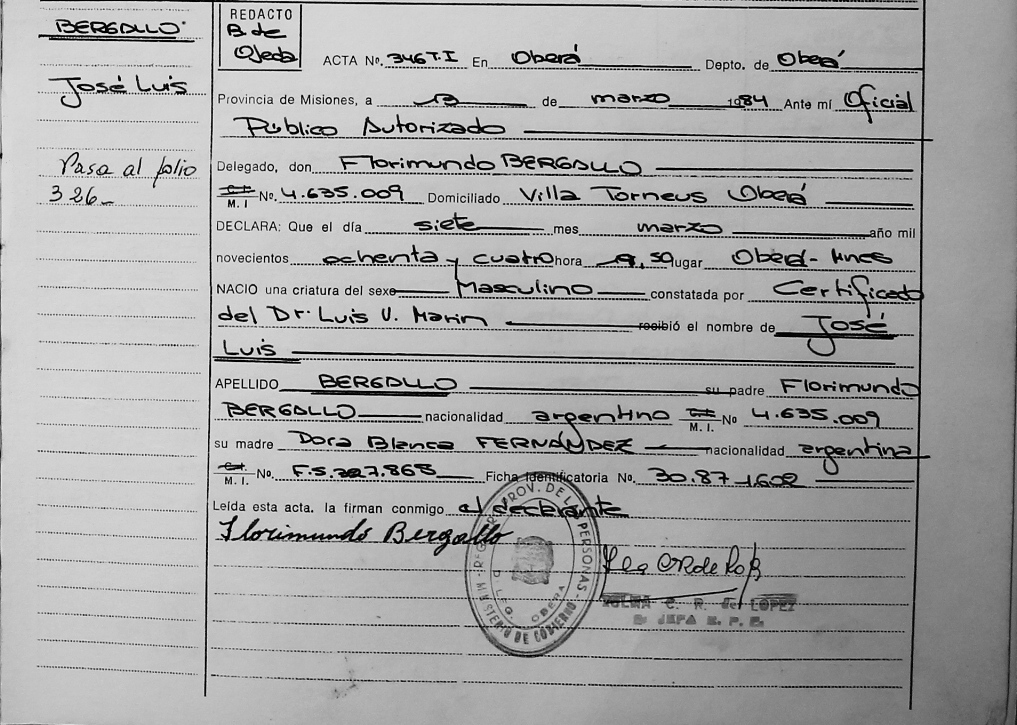 BERGALLO
José Luis
Pasa al folio
326
REDACTO
B de
Ojeda
ACTA No. 346 T.I En Oberá Depto. de Oberá
Provincia de Misiones, a 13 de marzo 1984 Ante mí Oficial
Público Autorizado
Delegado, don Florimundo BERGALLO
M. I No. 4.635.009 Domiciliado Villa Torneus Oberá
DECLARA: Que el día siete mes marzo año mil
novecientos ochenta y cuatro hora 9,50 lugar Oberá - Mnes
NACIO una criatura del sexo Masculino constatada por Certificado
del Dr. Luis V. Marin recibió el nombre de José
Luis
APELLIDO BERGALLO su padre Florimundo
BERGALLO nacionalidad argentino M. I. No 4.635.009
su madre Dora Blanca FERNÁNDEZ nacionalidad argentina
M. I. No. F.S. 327.868 Ficha Identificatoria No. 30.871.602
Leída esta acta. la firman conmigo el declarante
Florimundo Bergallo
PROV. DE LAS PERSONAS
MINISTERIO DE GOBIERNO
OBERA
C. R. de LOPEZ
JEFA